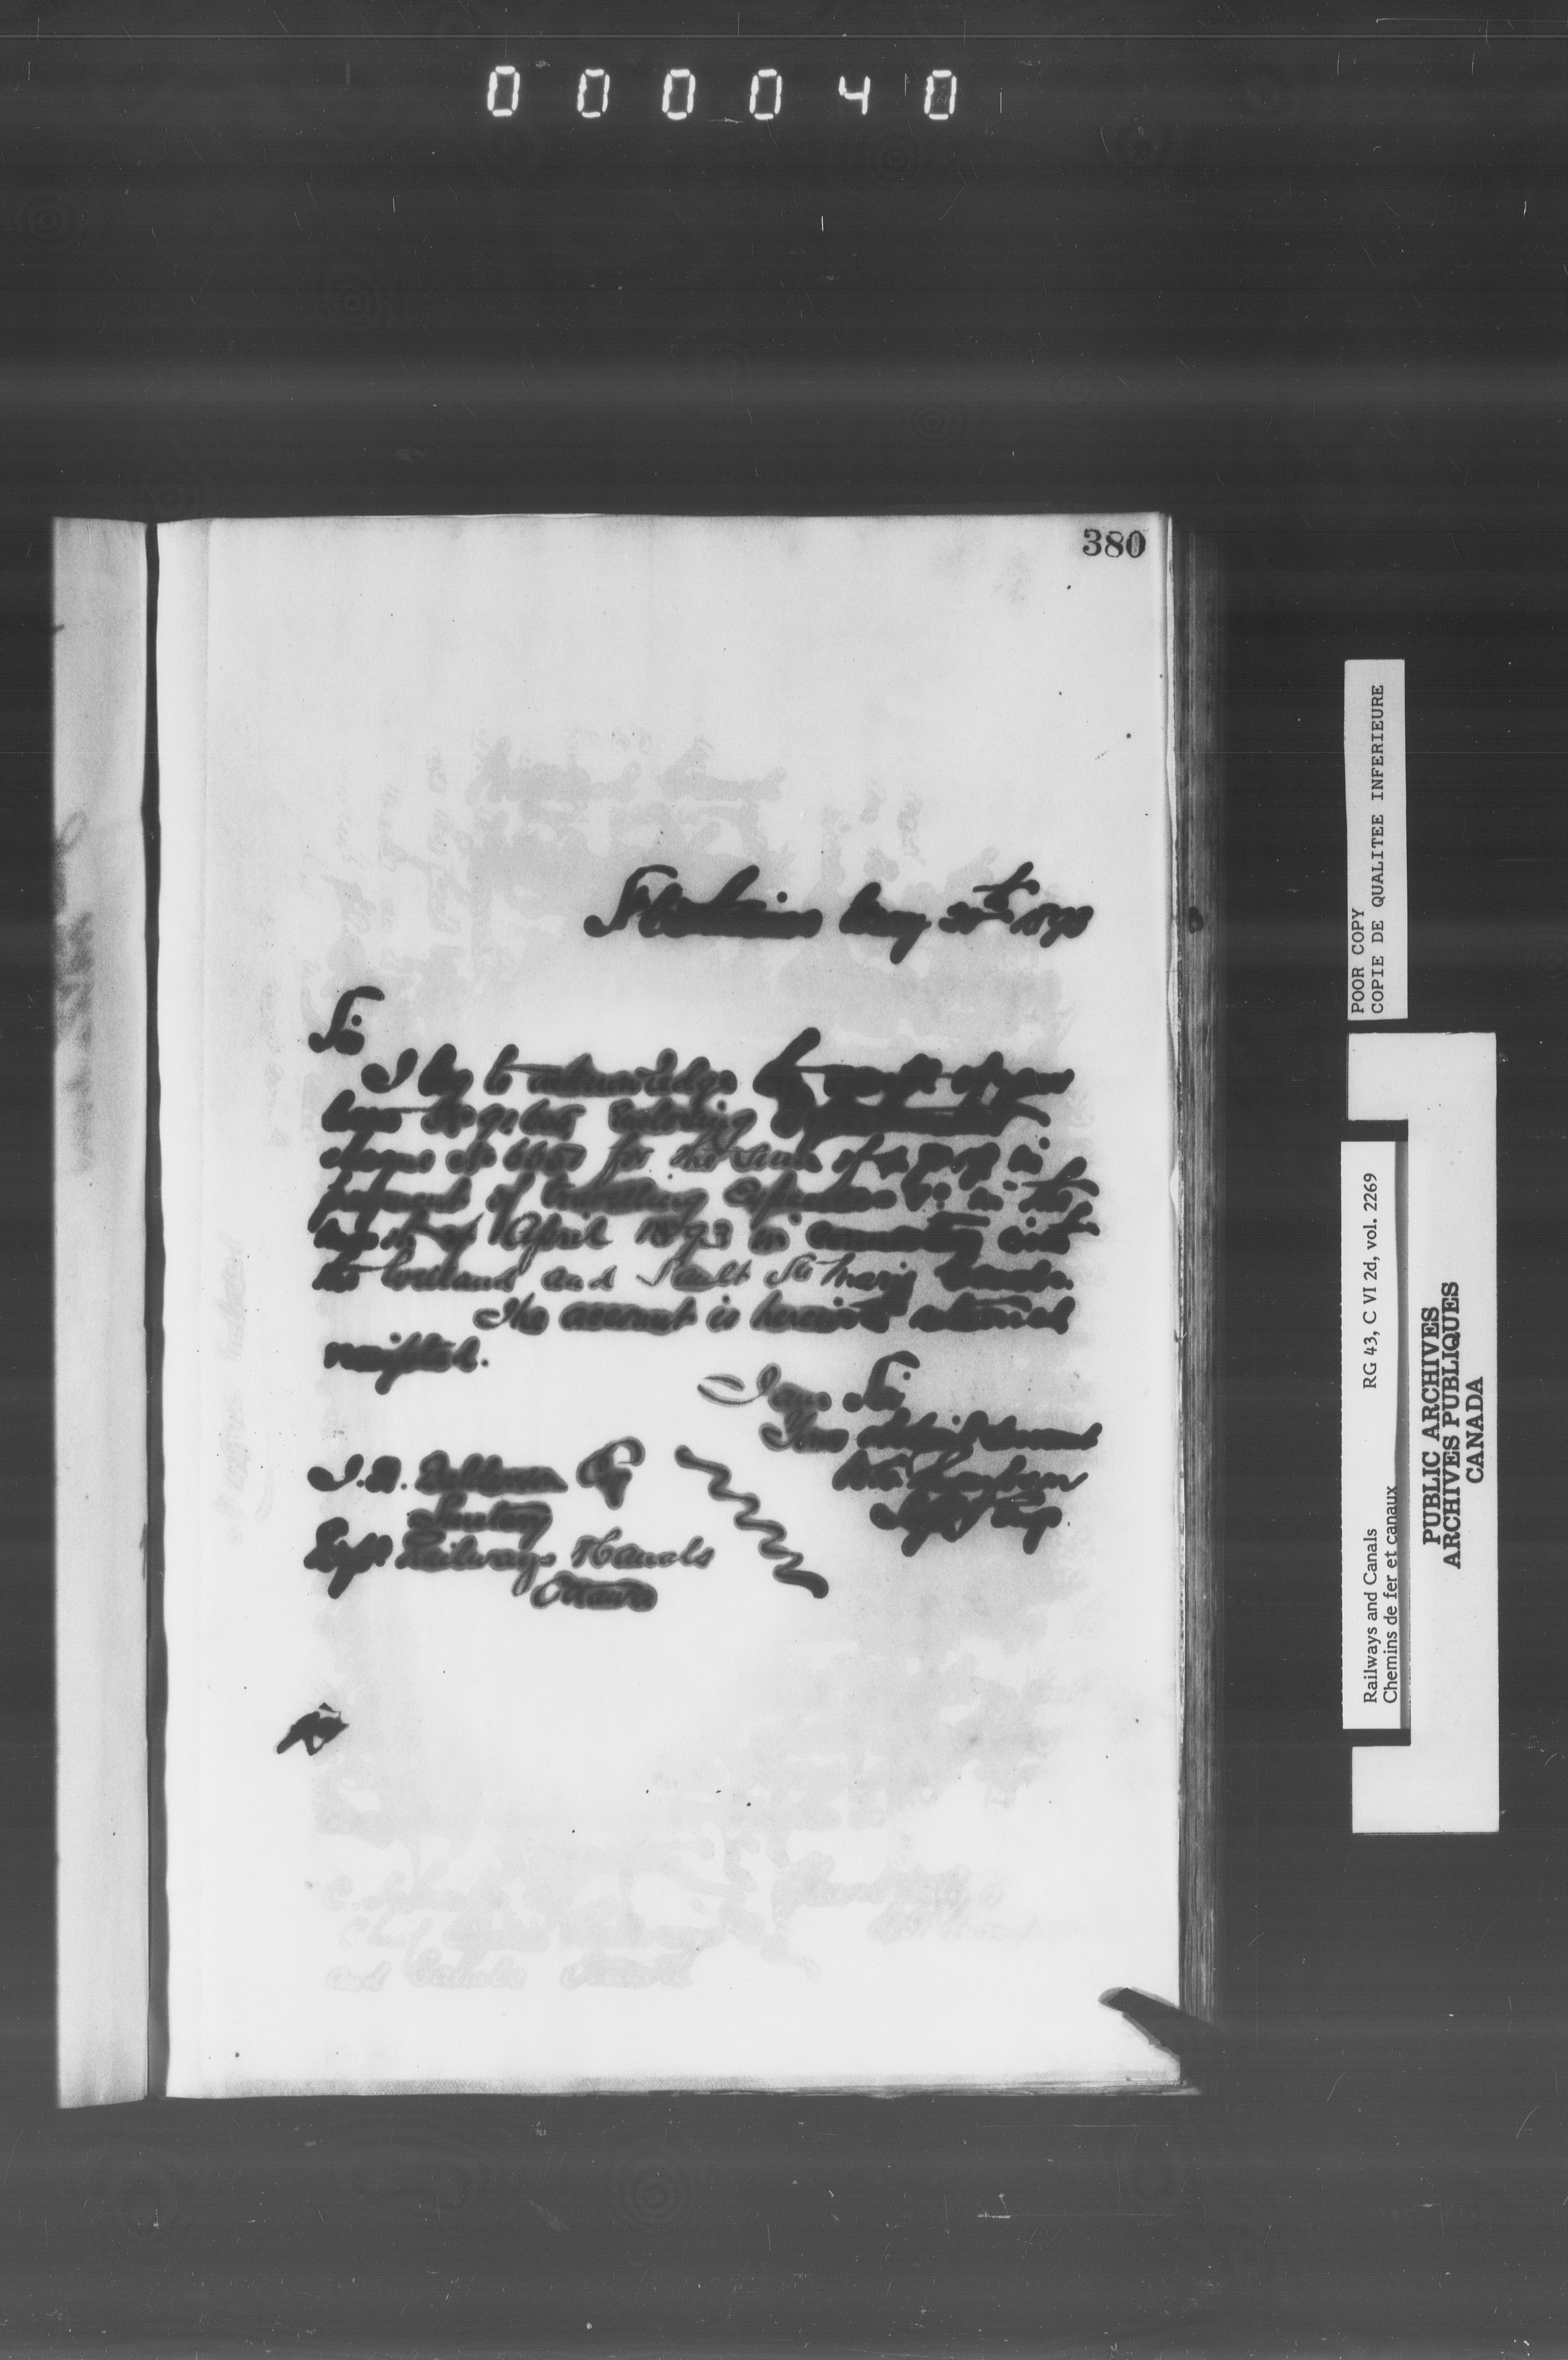 000040
380
St Catharines May 30th 1893
Sir
I beg to acknowledge the receipt of your
letter No 91605 Enclosing Departmental
cheque No 6650 for the sum of in
payment of travelling Expenses in the
month of April 1893 in connection with
the Welland and Sault Ste Marie Canals.
The account is herewith returned
receipted.
I am Sir
Your obedient servant
Supt Eng
J.H. Balderson Esq
Secretary
Dept Railways & Canals
Ottawa
POOR COPY
COPIE DE QUALITEE INFERIEURE
Railways and Canals RG 43, C VI 2d, vol. 2269
Chemins de fer et canaux
PUBLIC ARCHIVES
ARCHIVES PUBLIQUES
CANADA